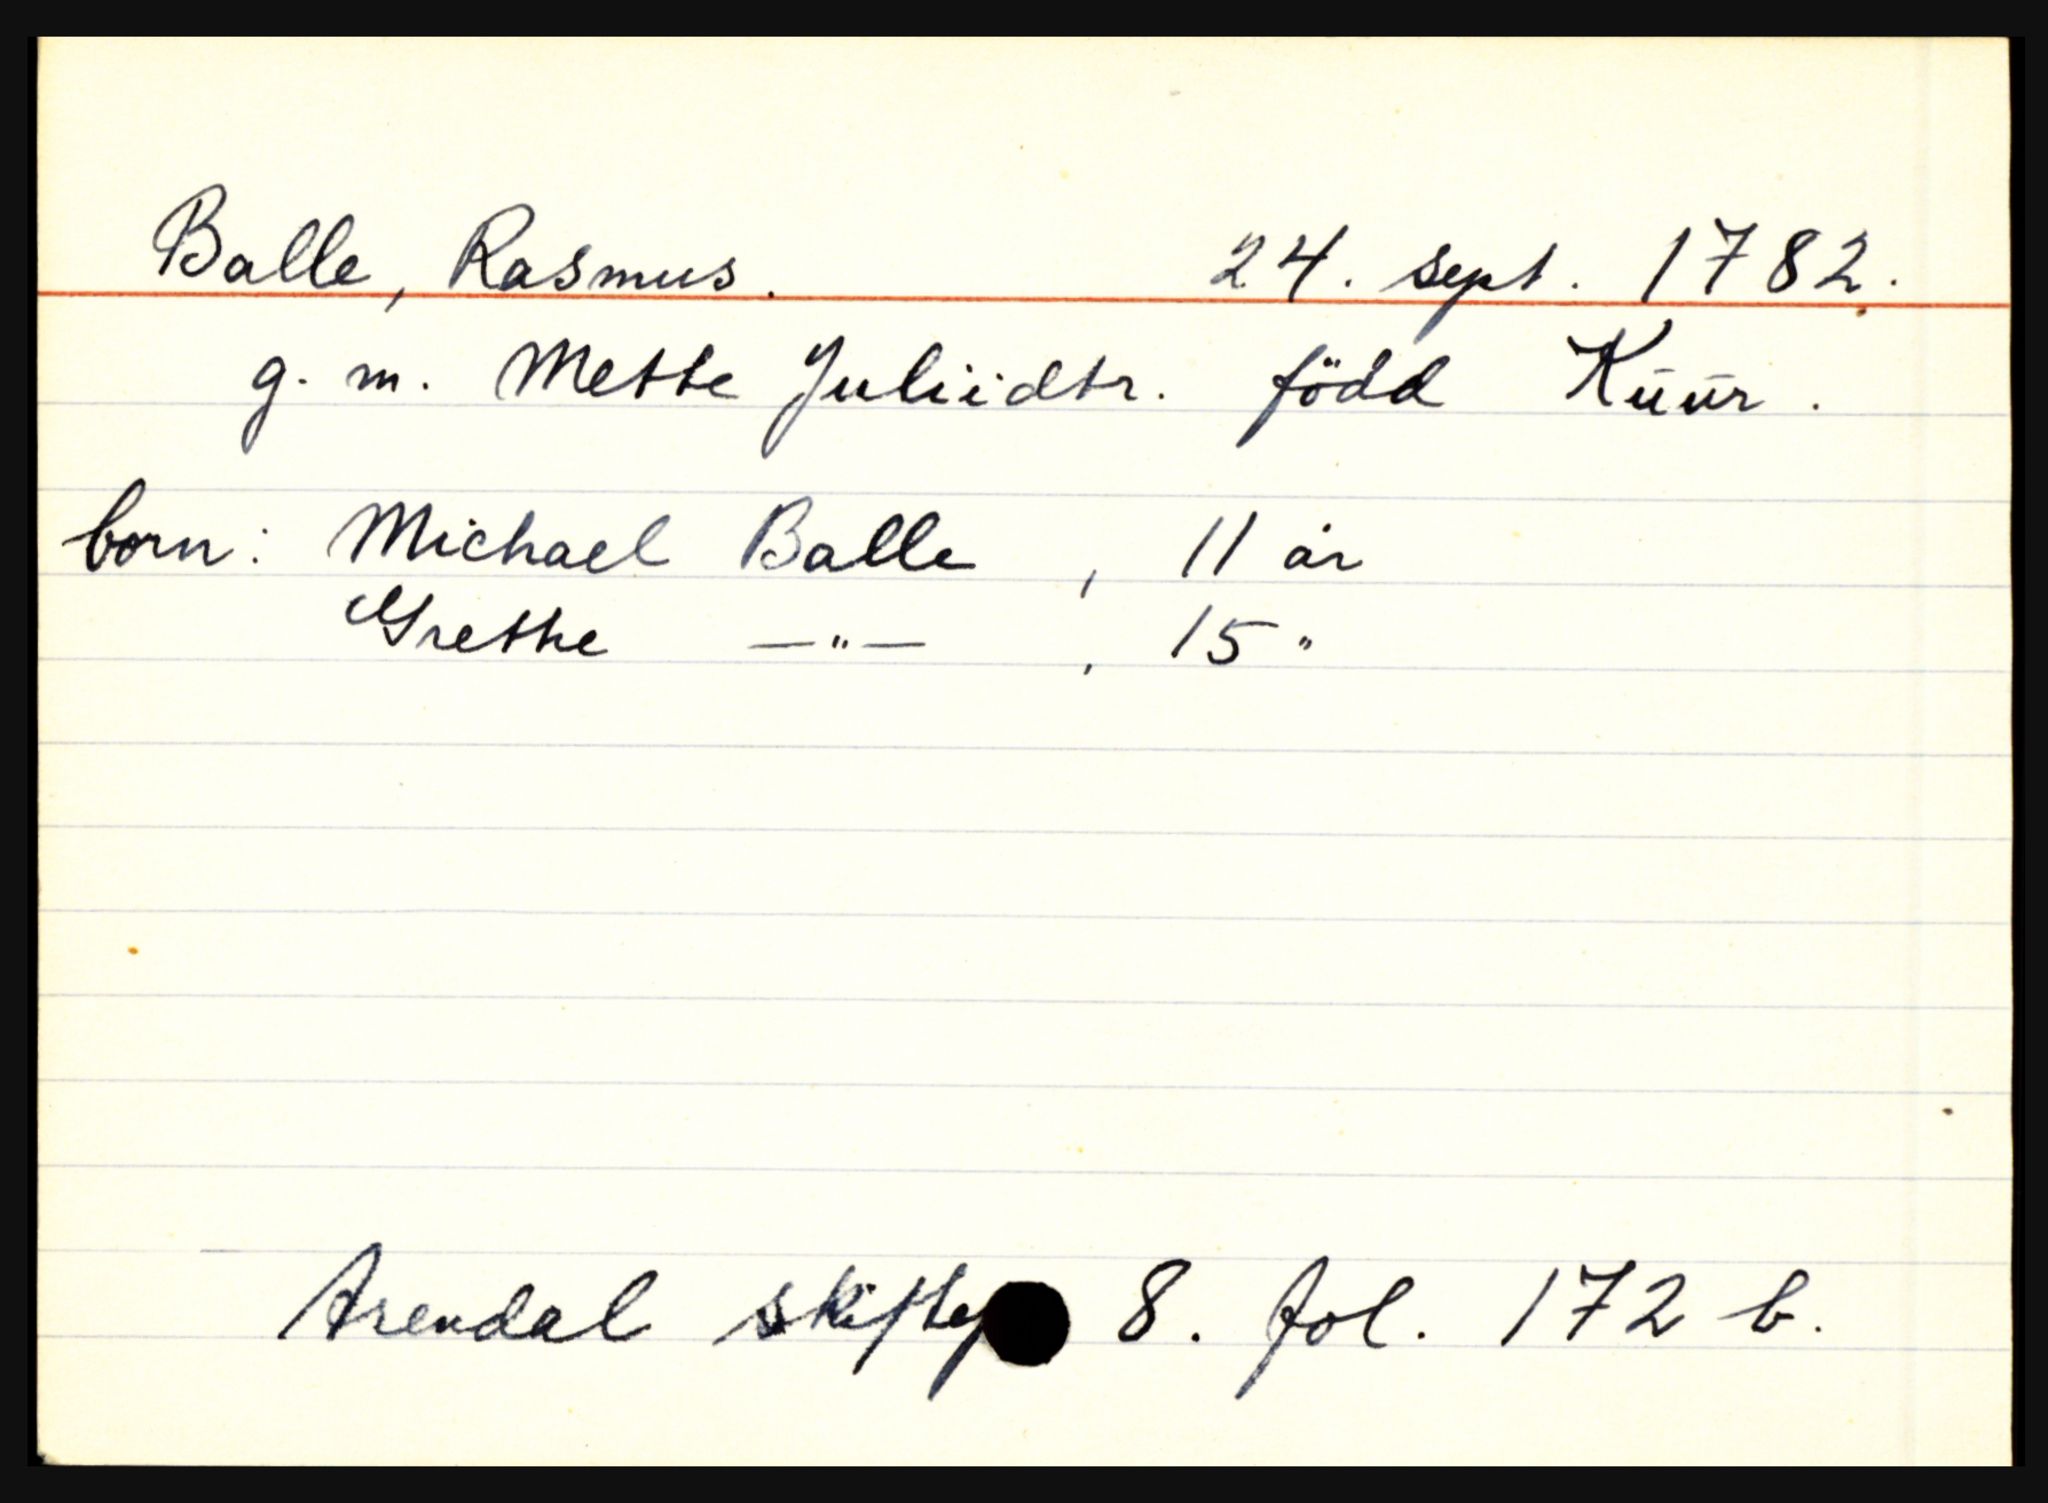 Balle, Rasmus. 24. sept. 1782.
g. m. Mette Juliidtr. född Kuur.
born: Michael Balle, 11 år
Grethe —"—, 15 "
Arendal skiftep 8. fol. 172 b.